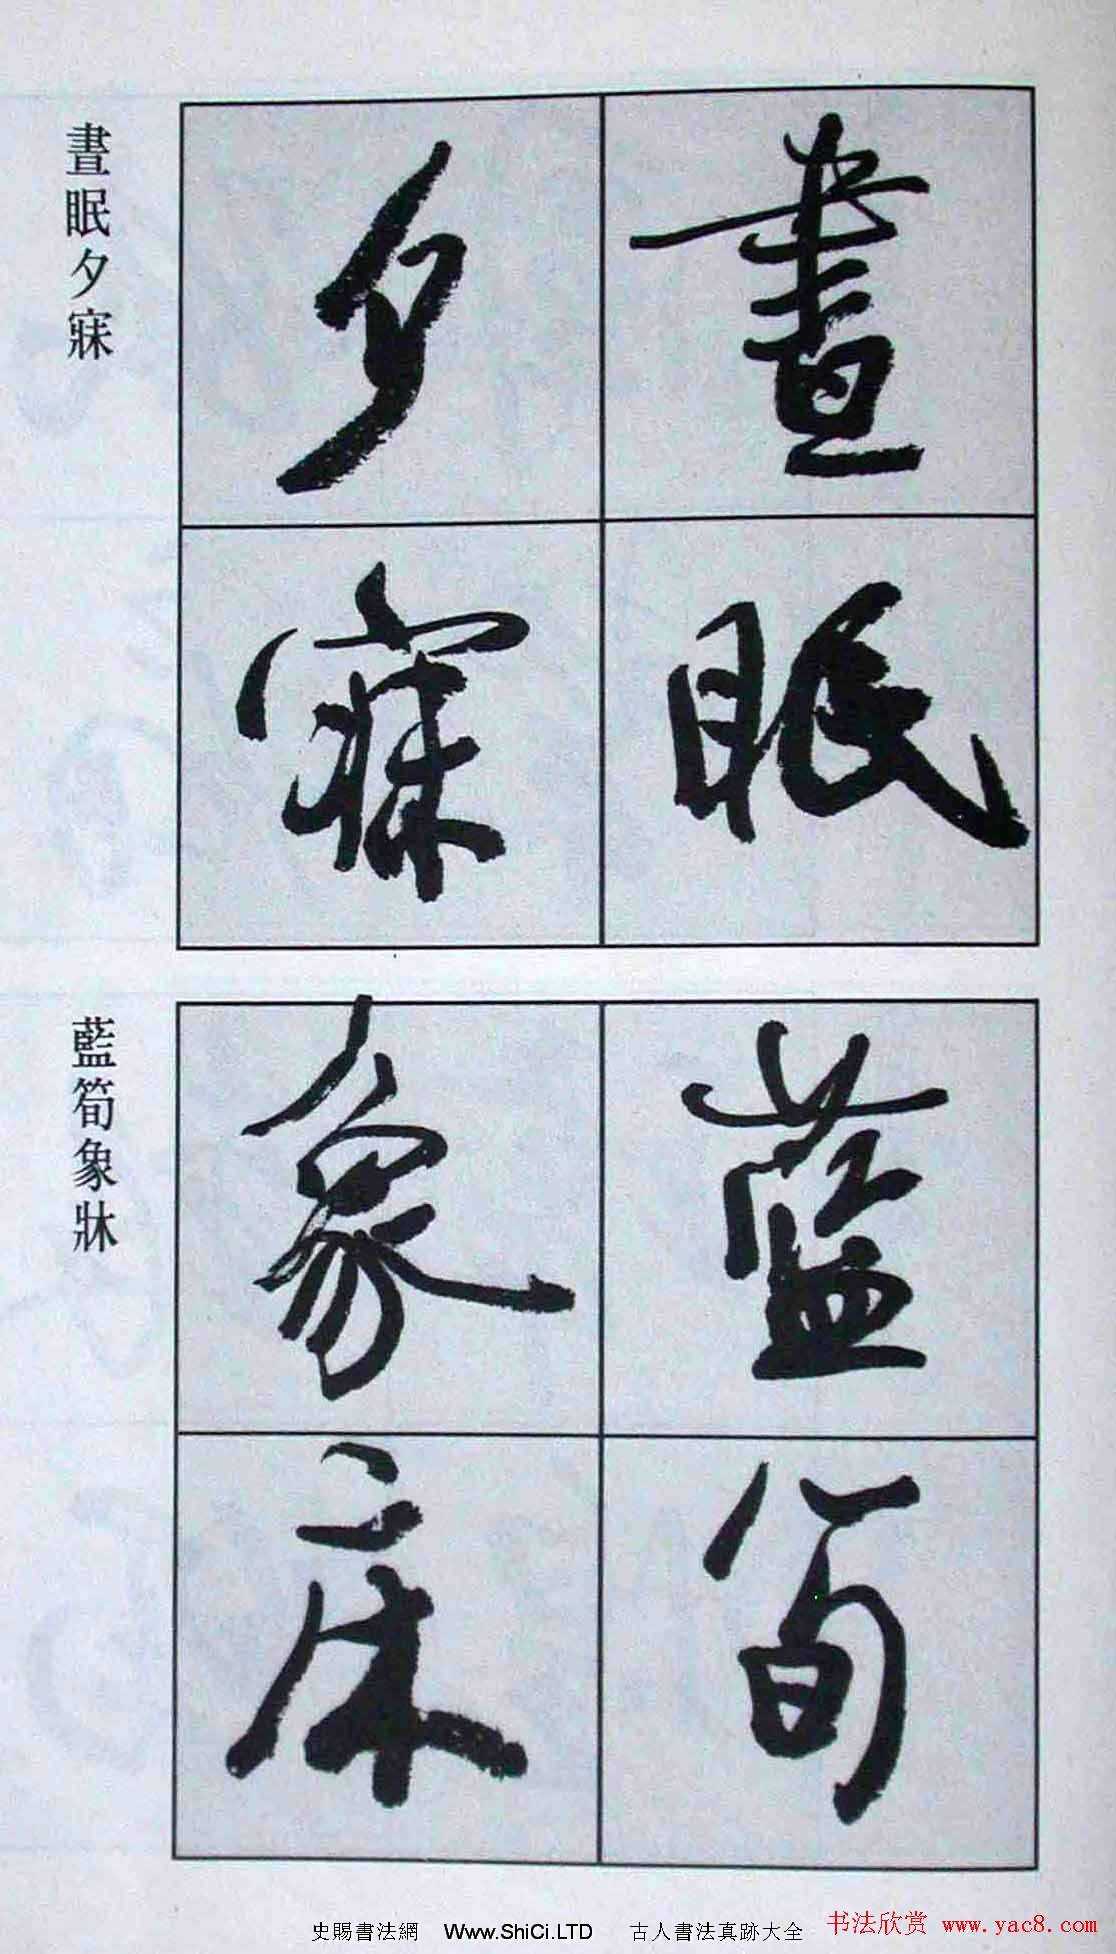 晝眠
夕寐
晝眠夕寐
藍筍
象床
藍筍象牀
史賜書法網 Www.ShiCi.LTD 古人書法真跡大全
书法欣赏 www.yac8.com